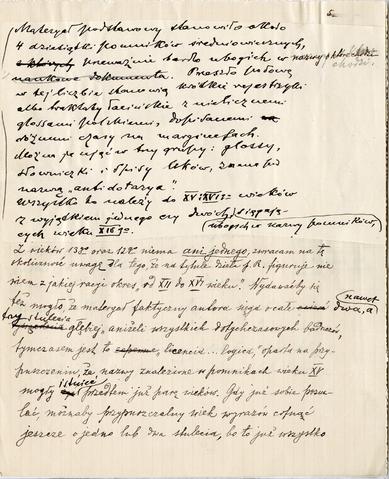 5.
Materyał podstawowy stanowiło około
4 dziesiątki pomników średniowiecznych,
z których przeważnie bardzo ubogich w nazwy, o które chodzi.
naukowe dokumenta. Przeszło połowę
w tej liczbie stanowią krótkie rejestrzyki
albo traktaty łacińskie z nielicznemi
glossami polskiemi, dopisanemi
różnymi czasy na marginesach.
Można je ująć w trzy grupy: glossy,
słowniczki i spisy leków, znane pod
nazwą „antidotarya".
Wszystko to należy do XV i XVI wieków
z wyjątkiem jednego czy dwóch, sięgają-
cych wieku XIII go. (ubogich w nazwy pomników)
Z wieków 13go oraz 12go niema ani jednego, zwracam na tę
okoliczność uwagę dla tego, że na tytule dzieła J. R. figuruje nie
wiem z jakiej racji okres, od XII do XVI wieku? Wydawałoby się
bez mogło, że materyał faktyczny autora sięga realnie nawet dwa, a
trzy stulecia głębiej, aniżeli wszystkich dotychczasowych badaczy,
tymczasem jest to licencia... logica, oparta na przy-
puszczeniu, że nazwy znalezione w pomnikach wieku XV
mogły istnieć przedtem już parę wieków. Gdy już sobie pozwa-
lać, możnaby przypuszczalny wiek wyrazów cofnąć
jeszcze o jedno lub dwa stulecia, bo to już wszystko